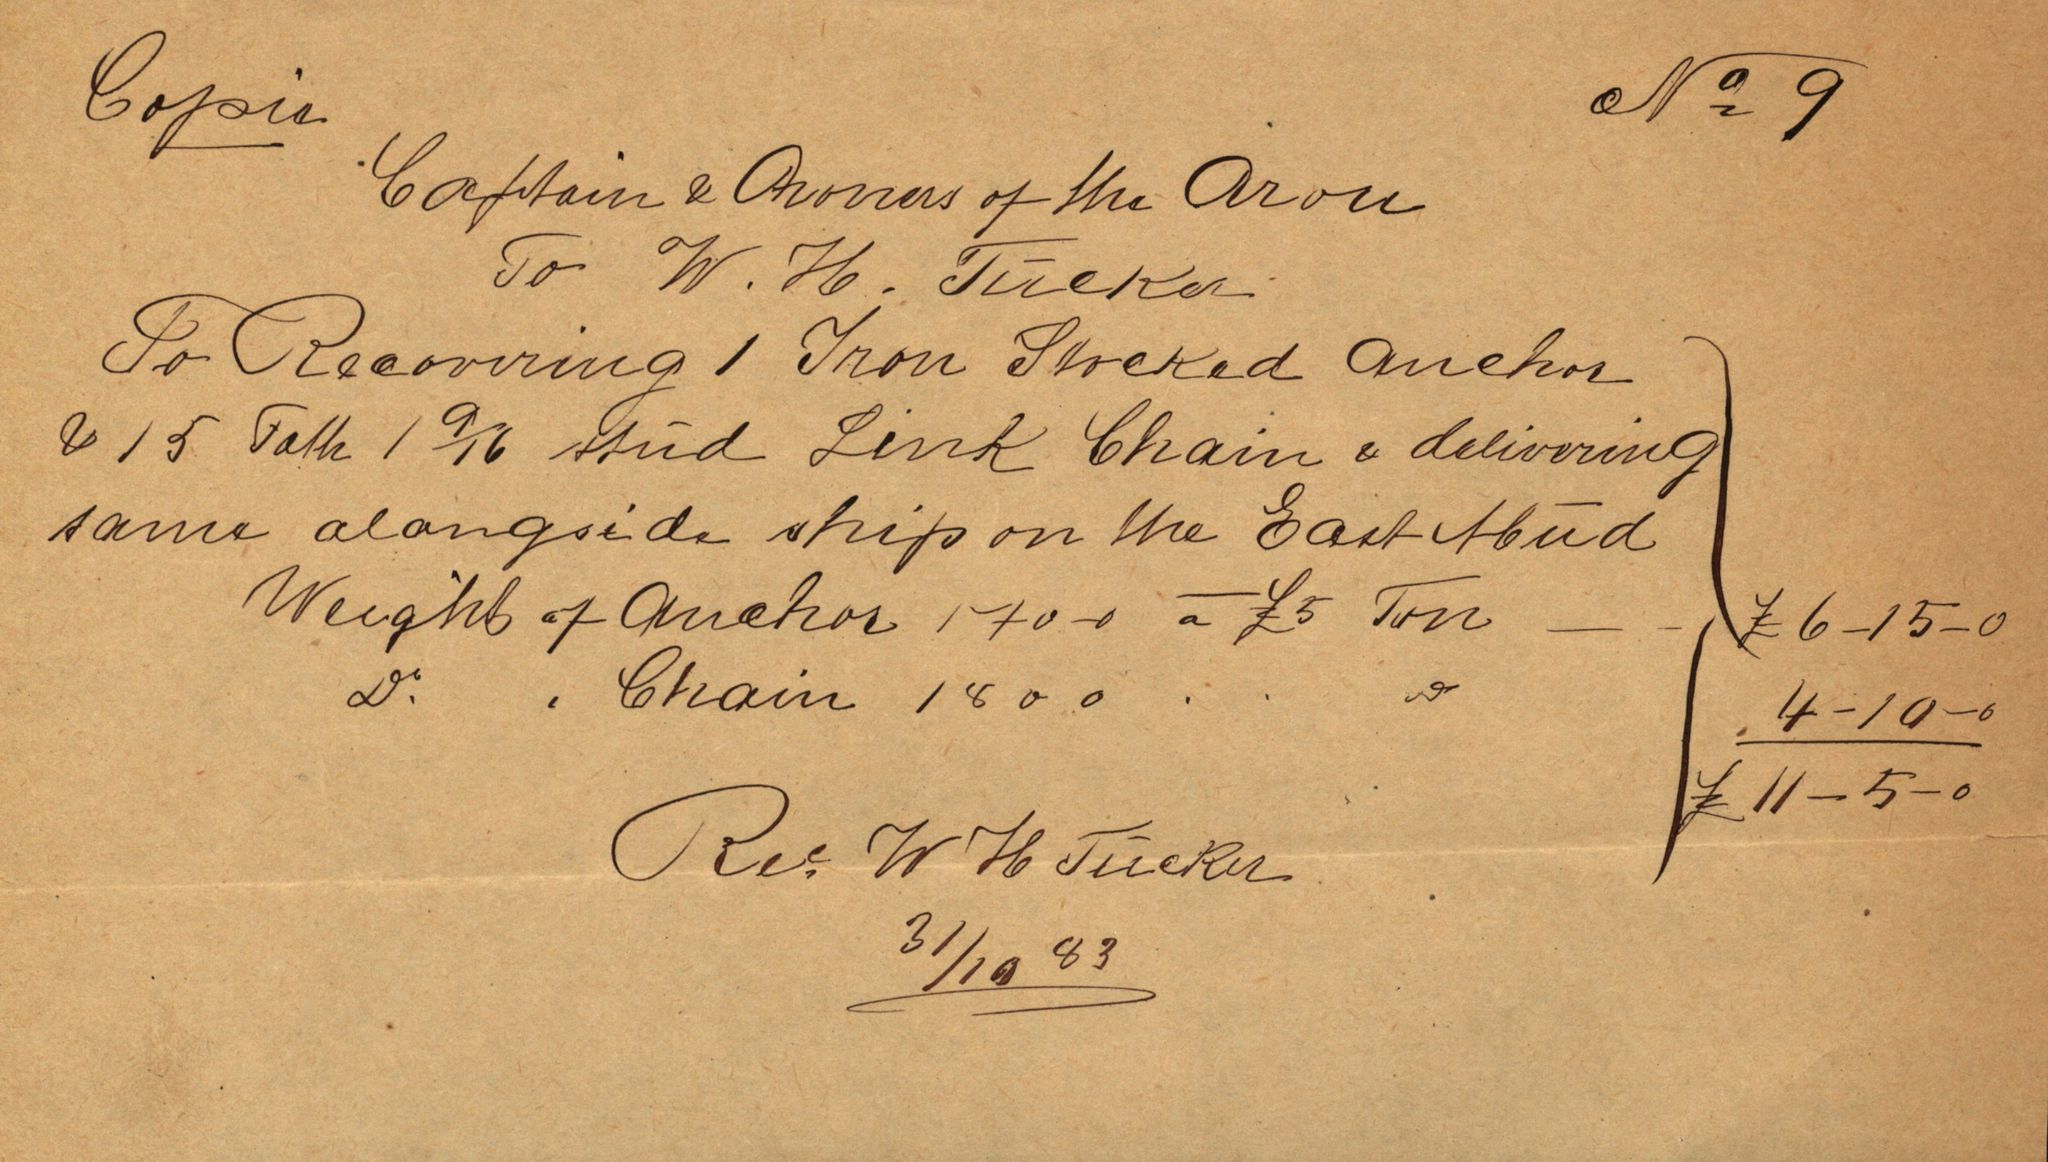 Copie
No 9
Captain & Owners of the Arou
To W. H. Tucker
To Recovering 1 Iron Stocked Anchor
& 15 Fath 1 9/16 stud Link Chain & delivering
same alongside ship on the East Mud
Weight of Anchor 1-7-0-0 a £5 Ton — - £ 6-15-0
Do. " Chain 1800 . . do 4-10-0
£ 11-5-0
Rec. W H Tucker
31/10 83